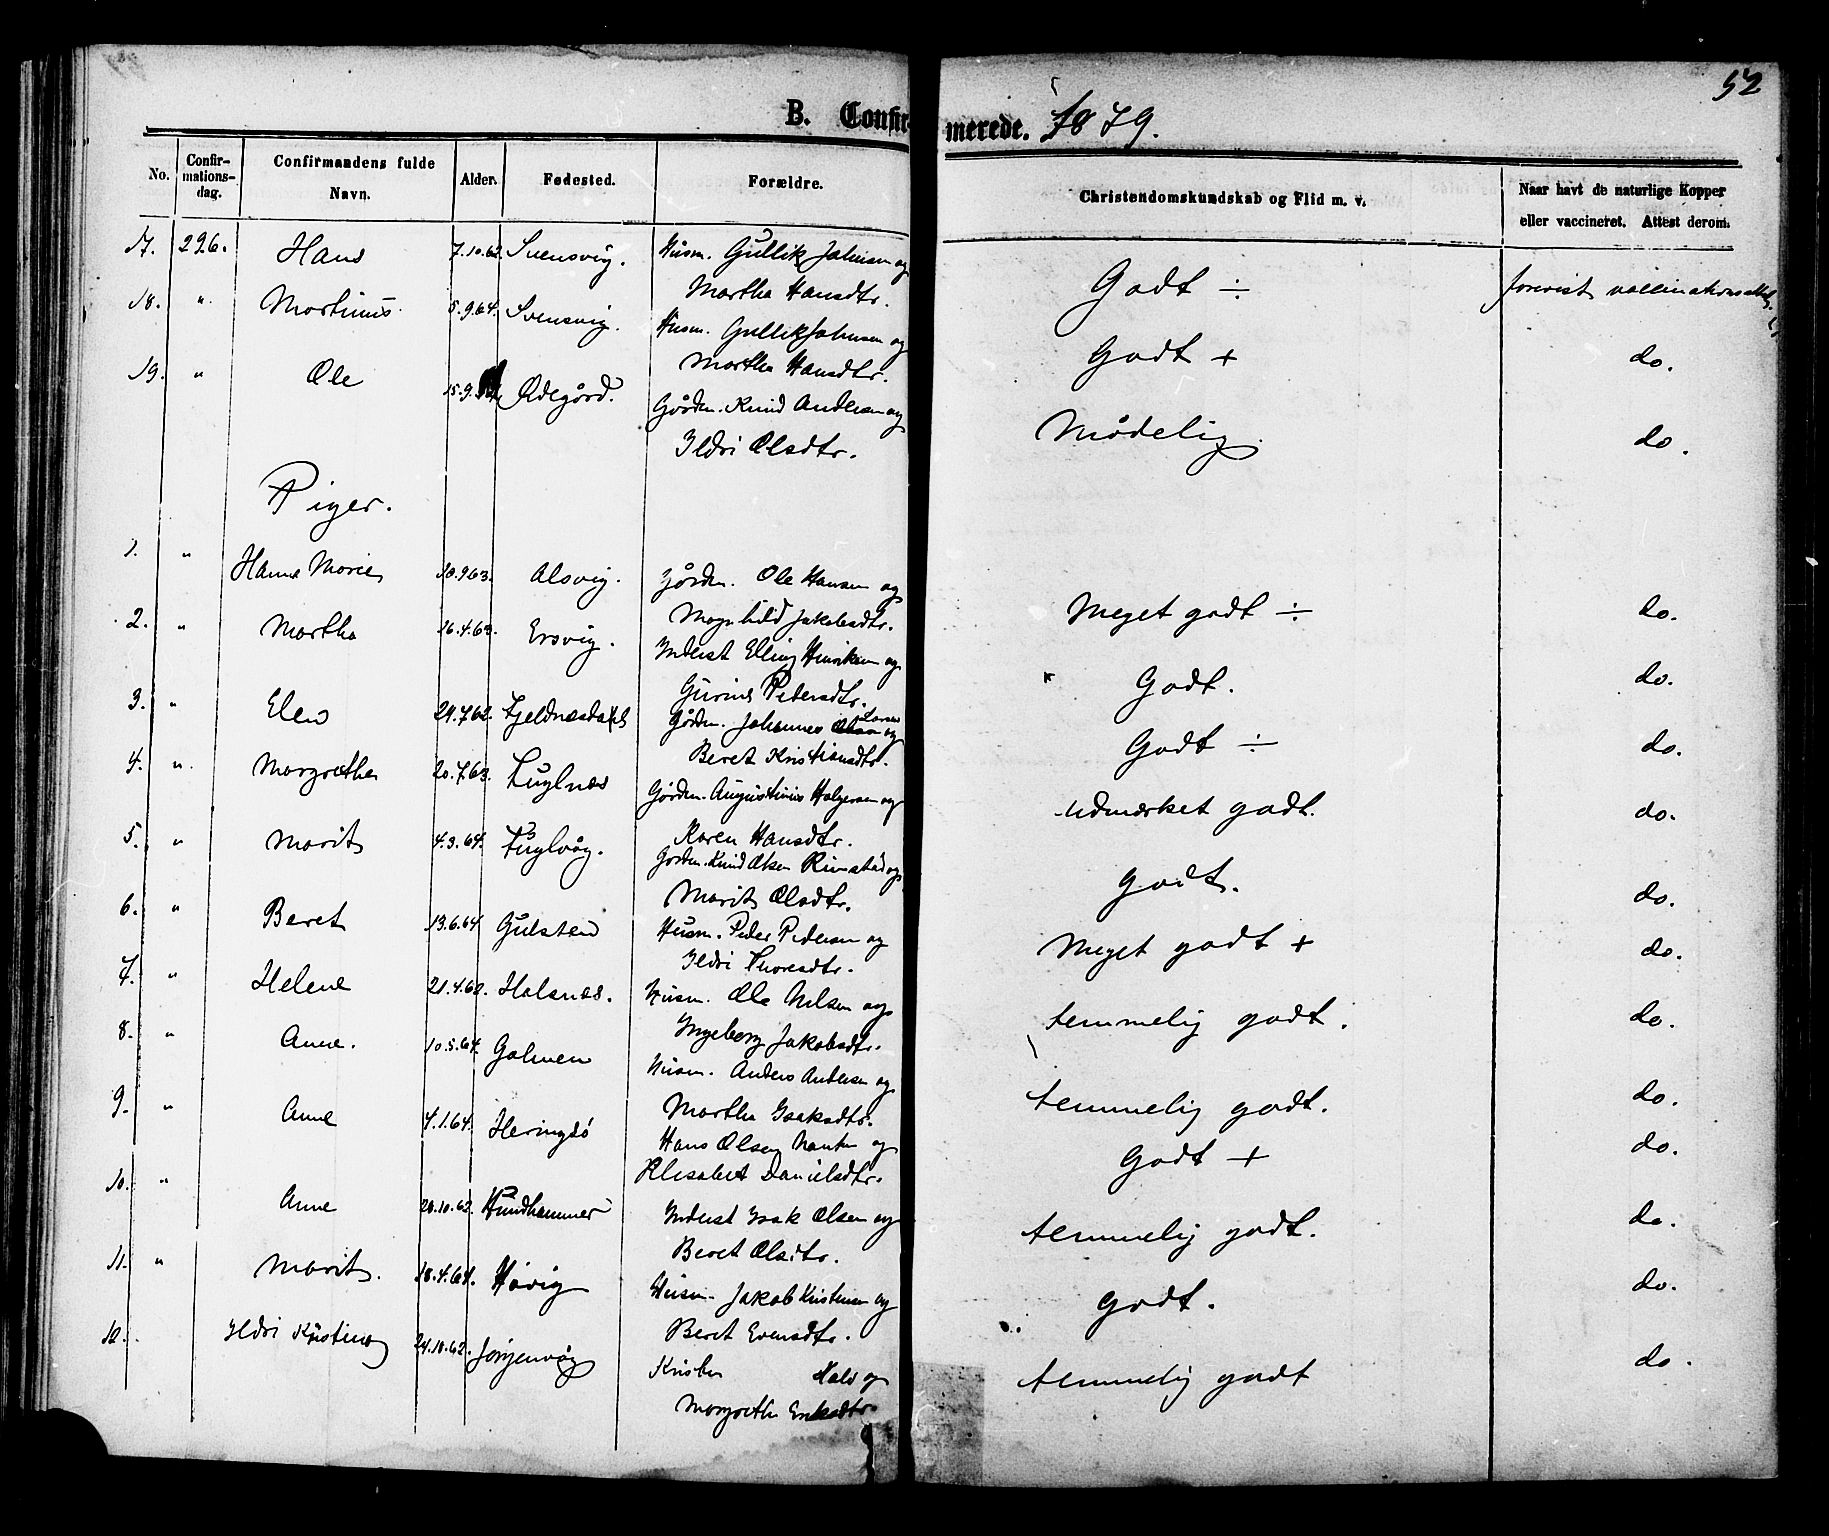 52
B. Confir-merede. 1879.
No. Confir-mations-dag. Confirmandens fulde Navn. Alder. Fødested. Forældre. Christendomskundskab og Flid m. v. Naar havt de naturlige Kopper eller vaccineret. Attest derom.
17. 29 6. Hans 7.10.62. Svensvig. Husm. Gullik Johnsen og
Martha Hansdtr. Godt ÷ forevist
18. " Martinus 5.9.64. Svensvig. Husm. Gullik Johnsen og
Martha Hansdtr. Godt + do.
19. " Ole 15.9. Ødegård. Gårdm. Knud Andersen og
Ildri Olsdtr. Mådelig. do.
Piger.
1. " Hanna Marie 10.9.63. Alsvig. Gårdm. Ole Hansen og
Magnhild Jakobsdtr. Meget godt ÷ do.
2. " Martha 16.4.63. Ersvig. Inderst Elling Henriksen og
Gurine Pedersdtr. Godt. do.
3. " Elen 24.7.62. Fjeldnæsdalel Gårdm. Johannes Larsen og
Beret Kristiansdtr. Godt ÷ do.
4. " Margrethe 20.7.63. Fuglnæs Gårdm. Augustinus Holgersen og
Karen Hansdtr. Udmærket godt. do.
5. " Marit 4.3.64. Fuglvåg. Gårdm. Knud Olsen Rimstad og
Marit Olsdtr. Godt. do.
6. " Beret 13.6.64. Gulsten Husm. Peder Pedersen og
Ildri Thoresdtr. Meget godt + do.
7. " Helene 21.4.62. Halsnæs. Husm. Ole Nilsen og
Ingeborg Jakobsdtr. temmelig godt. do.
8. " Anne. 10.5.64. Golmen Husm. Anders Andersen og
Martha Isaksdtr. temmelig godt. do.
9. " Anne 4.1.64. Heringsø Hans Olsen og
Elisabet Danielsdtr. Godt + do.
10. " Anne 20.10.62. Hundhammer Inderst Isak Olsen og
Beret Olsdtr. temmelig godt. do.
11. " Marit. 18.4.64. Høvig Husm. Jakob Kristensen og
Beret Evensdtr. Godt. do.
12. Ildri Kristine 24.10.62. Jørgenvåg Hals og
Margrethe Eriksdtr. temmelig godt do.